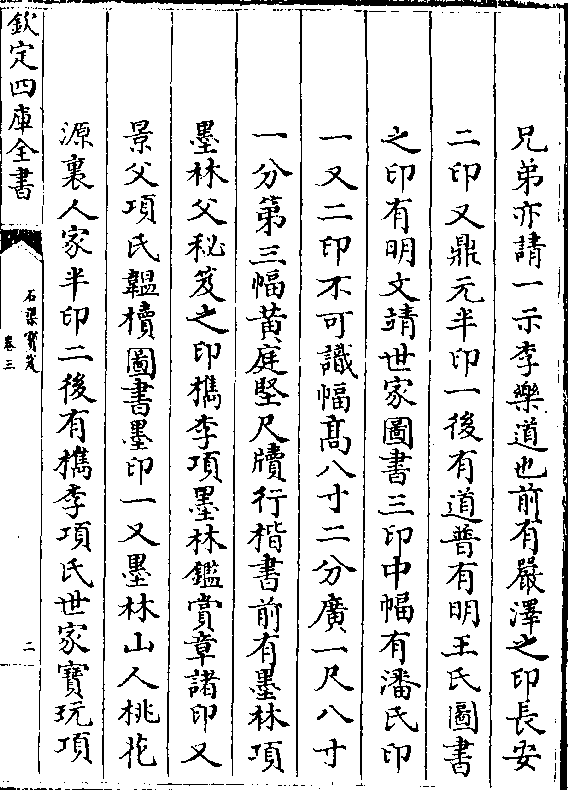 兄弟亦請一示李樂道也前有嚴澤之印長安
二印又鼎元半印一後有道普有明王氏圖書
之印有明文靖世家圖書三印中幅有潘氏印
一又二印不可識幅高八寸二分廣一尺八寸
一分第三幅黄庭堅尺牘行楷書前有墨林項
墨林父秘笈之印檇李項墨林鑑賞章諸印又
景父項氏韞櫝圖書墨印一又墨林山人桃花
源裏人家半印二後有檇李項氏世家寶玩項
欽定四庫全書
石渠寳笈
卷三
二